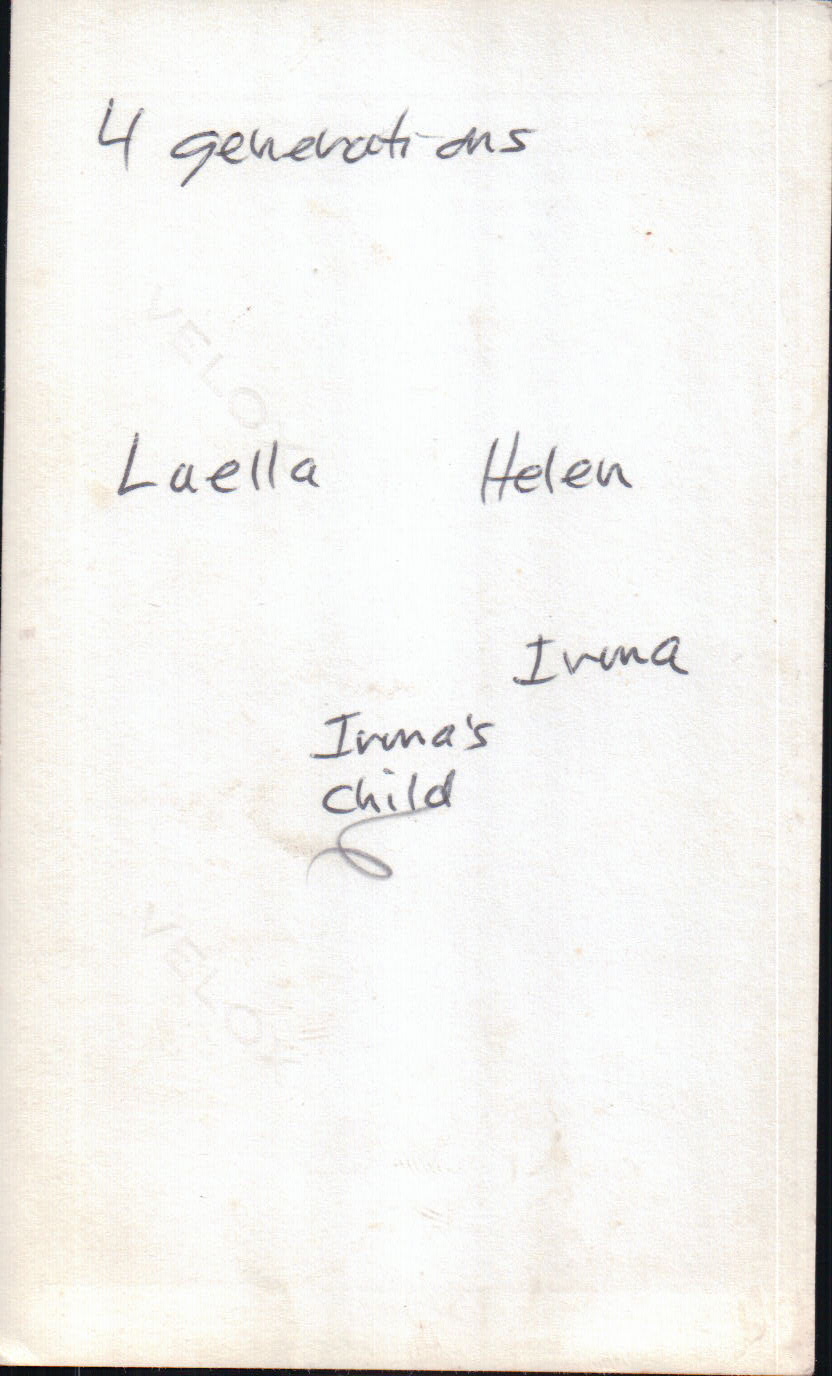 4 generations
VELOX
Luella Helen
Irma
Irma's
child
VELOX